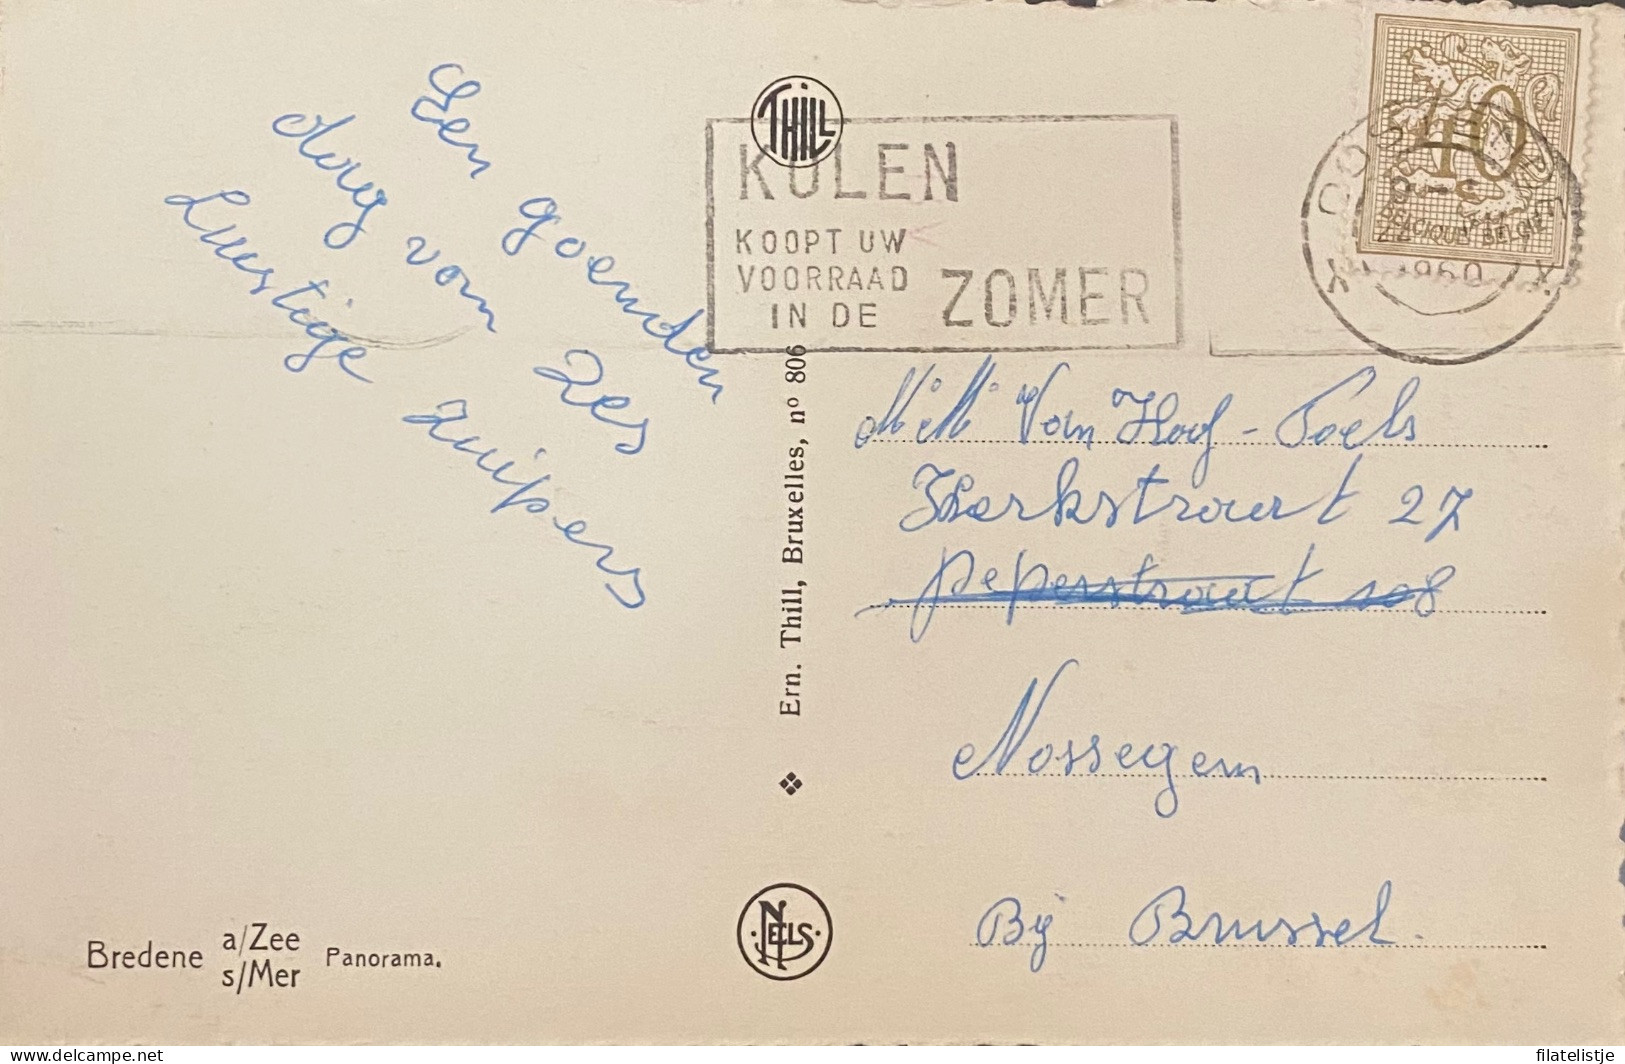 Een goenden
dag van zes
Luustige zuipers
THILL
KOLEN
KOOPT UW
VOORRAAD
IN DE
ZOMER
OOSTENDE
1960
40c
BELGIQUE BELGIE
Ern. Thill, Bruxelles, nº 806
Mr Mm Van Hoof - Poels
Kerkstraat 27
peperstraat 108
Nossegem
Bij Brussel.
NELS
Bredene a/Zee
s/Mer Panorama.
www.delcampe.net
filatelistje